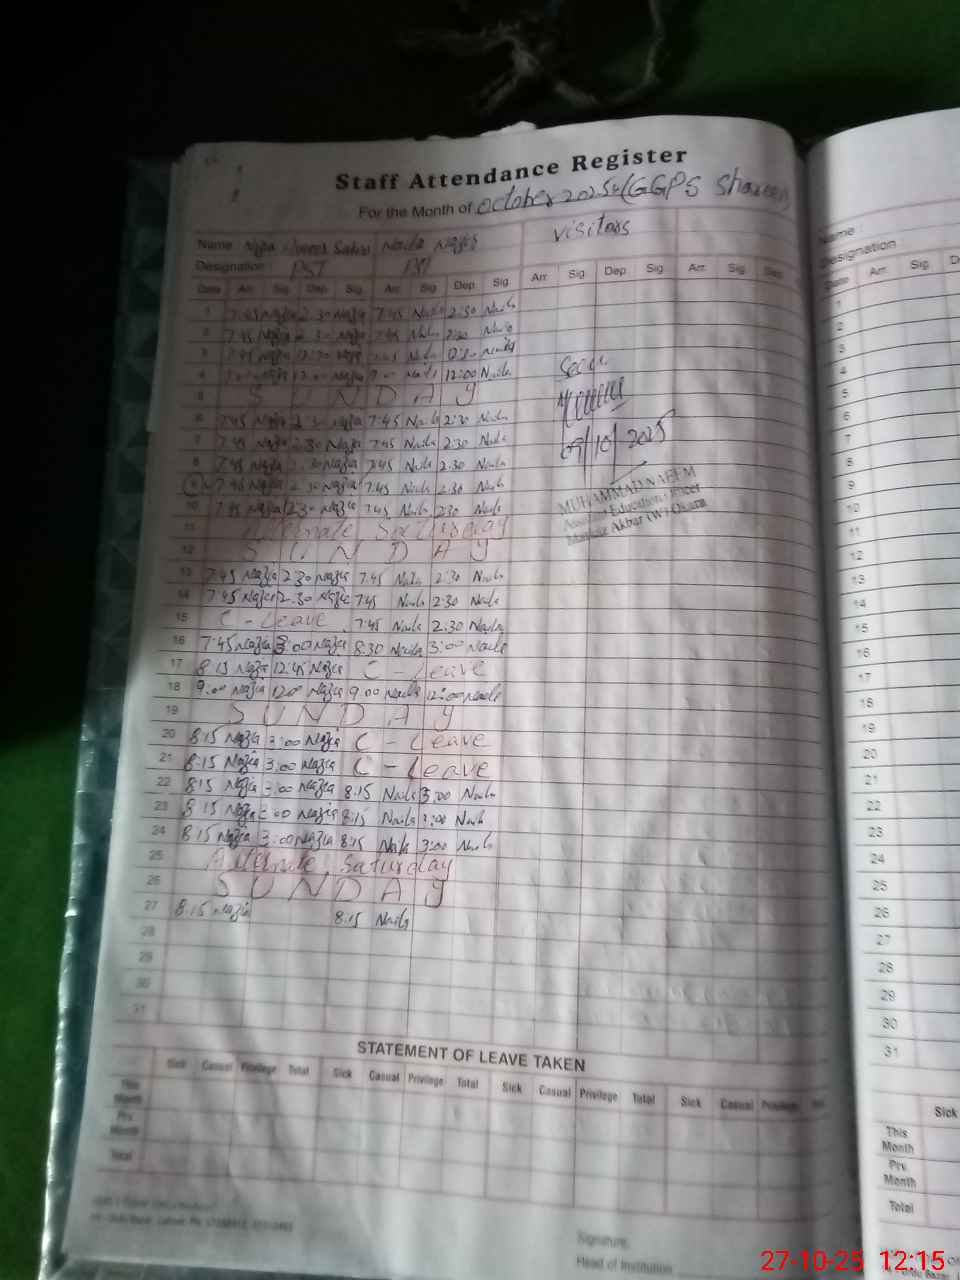 Staff Attendance Register
For the Month of October 2025 (GGPS Shareen)
Name Sabir Naila Nazir visitors
Designation : PST PST
Date Arr. Sig. Dep. Sig. Arr. Sig Dep. Sig. Arr. Sig Dep Sig Arr. Sig. Dep
1 7:45 Nazia 2:30 Nazia 7:45 Naila 2:30 Naila
2 7:45 Nazia 2:30 Nazia 7:45 Naila 2:30 Naila
3 7:45 Nazia 12:30 7:45 Naila Naila
4 Nazia 12:00 Nazia 9:00 Naila 12:00 Naila
5 SUNDAY
6 7:45 Nazia 2:30 Nazia 7:45 Naila 2:30 Naila
7 7:45 Nazia 2:30 Nazia 7:45 Naila 2:30 Naila
8 7:45 Nazia 2:30 Nazia 7:45 Naila 2:30 Naila
9 7:45 Nazia 2:30 Nazia 7:45 Naila 2:30 Naila
10 7:45 Nazia 2:30 Nazia 7:45 Naila 2:30 Naila
11 Alternate Saturday
12 SUNDAY
13 7:45 Nazia 2:30 Nazia 7:45 Naila 2:30 Naila
14 7:45 Nazia 2:30 Nazia 7:45 Naila 2:30 Naila
15 C - Leave 7:45 Naila 2:30 Naila
16 7:45 Nazia 3:00 Nazia 8:30 Naila 3:00 Naila
17 8:15 Nazia 12:45 Nazia C - Leave
18 9:00 Nazia 12:00 Nazia 9:00 Naila 12:00 Naila
19 SUNDAY
20 8:15 Nazia 3:00 Nazia C - Leave
21 8:15 Nazia 3:00 Nazia C - Leave
22 8:15 Nazia 3:00 Nazia 8:15 Naila 3:00 Naila
23 8:15 Nazia 3:00 Nazia 8:15 Naila 3:00 Naila
24 8:15 Nazia 3:00 Nazia 8:15 Naila 3:00 Naila
25 Alternate Saturday
26 SUNDAY
27 8:15 Nazia 8:15 Naila
28
29
30
31
Seen
09/10/2025
MUHAMMAD NAEEM
Assistant Education Officer
Markaz Akbar (W) Okara
STATEMENT OF LEAVE TAKEN
Sick Casual Privilege Total Sick Casual Privilege Total Sick Casual Privilege Total Sick Casual Privilege
This Month
Prv. Month
Total
Signature.
Head of Institution
Name :
Designation :
Date Arr. Sig
1
2
3
4
5
6
7
8
9
10
11
12
13
14
15
16
17
18
19
20
21
22
23
24
25
26
27
28
29
30
31
Sick
This Month
Prv. Month
Total
27-10-25 12:15